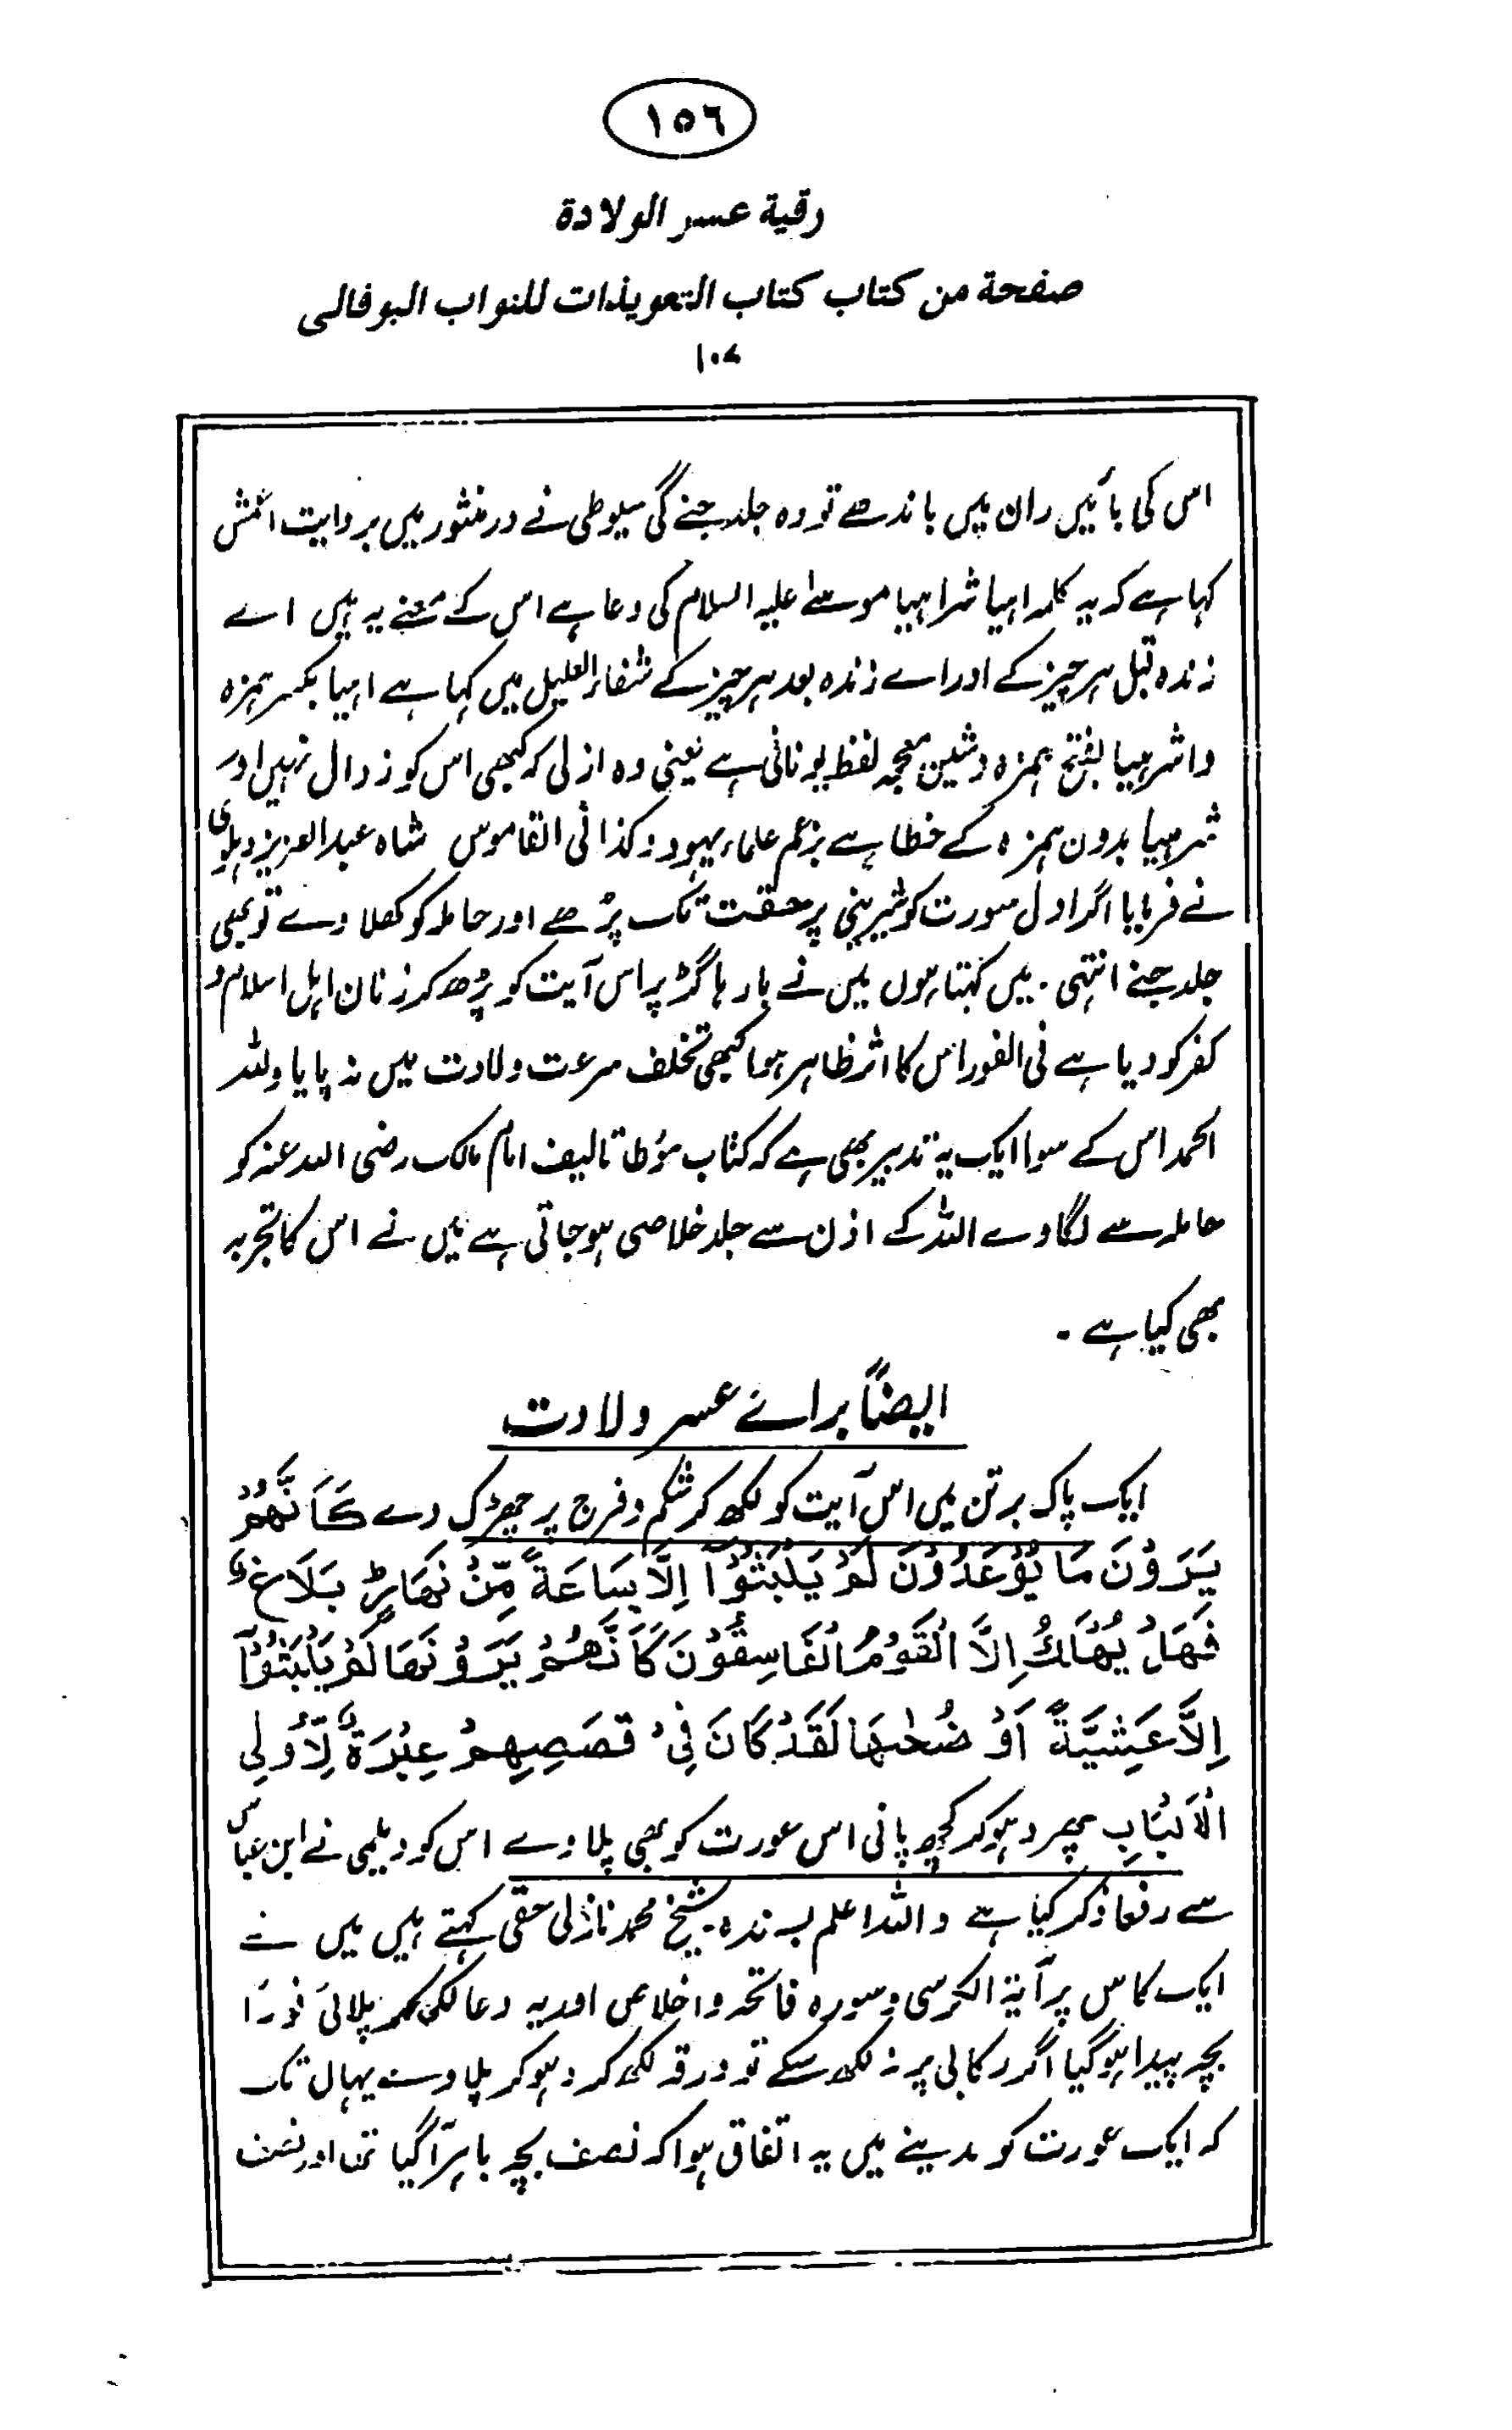 ١٥٦
رقية عسر الولادة
صفحة من كتاب كتاب التعويذات للنواب البوفالى
١٠٧
اس کی بائیں ران میں باندھے تو وہ جلد جنے گی سیوطی نے در منثور میں بروایت اعمش
کہا ہے کہ یہ کلمہ اہیا شراہیا موسےٰ علیہ السلام کی دعا ہے اس کے معنے یہ ہیں اے
زندہ قبل ہر چیز کے اور اے زندہ بعد ہر چیز کے شفاء العلیل میں کہا ہے اہیا بکسر ہمزہ
واشراہیا بفتح ہمزہ وشین معجمہ لفظ یونانی ہے یعنی وہ ازلی کہ کبھی اس کو زوال نہیں اور
شراہیا بدون ہمزہ کے خطا ہے بزعم علماء یہود وکذا فی القاموس شاہ عبدالعزیز دہلوی
نے فرمایا اگر اول سورت کو شیرینی پر حقت تک پڑھے اور حاملہ کو کھلا دے تو بھی
جلد جنے انتہی . میں کہتا ہوں میں نے بارہا گڑ پر اس آیت کو پڑھ کر زنان اہل اسلام و
کفر کو دیا ہے فی الفور اس کا اثر ظاہر ہوا کبھی تخلف سرعت ولادت میں نہ پایا وللہ
الحمد اس کے سوا ایک یہ تدبیر بھی ہے کہ کتاب مؤطا تالیف امام مالک رضی اللہ عنہ کو
حاملہ سے لگا وے اللہ کے اذن سے جلد خلاصی ہو جاتی ہے میں نے اس کا تجربہ
بھی کیا ہے .
ایضاً برائے عسر ولادت
ایک پاک برتن میں اس آیت کو لکھ کر شکم و فرج پر چھڑک دے كَاَنَّهُمْ
يَرَوْنَ مَا يُوْعَدُوْنَ لَمْ يَلْبَثُوْٓا اِلَّا سَاعَةً مِّنْ نَهَارٍ بَلَاغٌ
فَهَلْ يُهْلَكُ اِلَّا الْقَوْمُ الْفَاسِقُوْنَ كَاَنَّهُمْ يَرَوْنَهَا لَمْ يَلْبَثُوْٓا
اِلَّا عَشِيَّةً اَوْ ضُحٰهَا لَقَدْ كَانَ فِىْ قَصَصِهِمْ عِبْرَةٌ لِّاُولِى
الْاَلْبَابِ پھر دہو کر کچھ پانی اس عورت کو بھی پلا وے اس کو دیلمی نے ابن عباس
سے رفعا ذکر کیا ہے واللہ اعلم بسندہ . شیخ محمد نازلی حقی کہتے ہیں میں نے
ایک کاس پر آیۃ الکرسی وسورہ فاتحہ واخلاص اور یہ دعا لکھ کر پلائی فورًا
بچہ پیدا ہو گیا اگر رکابی پر نہ لکھ سکے تو ورقہ لکھ کر دہو کر پلا وے یہاں تک
کہ ایک عورت کو مدینے میں یہ اتفاق ہوا کہ نصف بچہ باہر آگیا تھا اور نصف